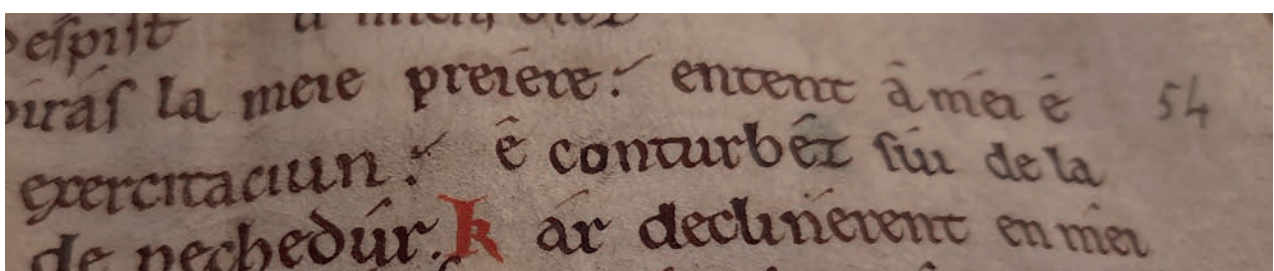 espist
la meie preiere: entent â mei é 54
exercitaciun: ê conturbêz sui de la
de pechedúr. k ar declinerent en mei